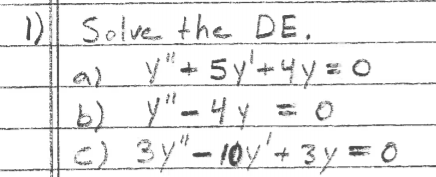 1) Solve the DE.
a) y" + 5y' + 4y = 0
b) y" - 4y = 0
c) 3y" - 10y' + 3y = 0